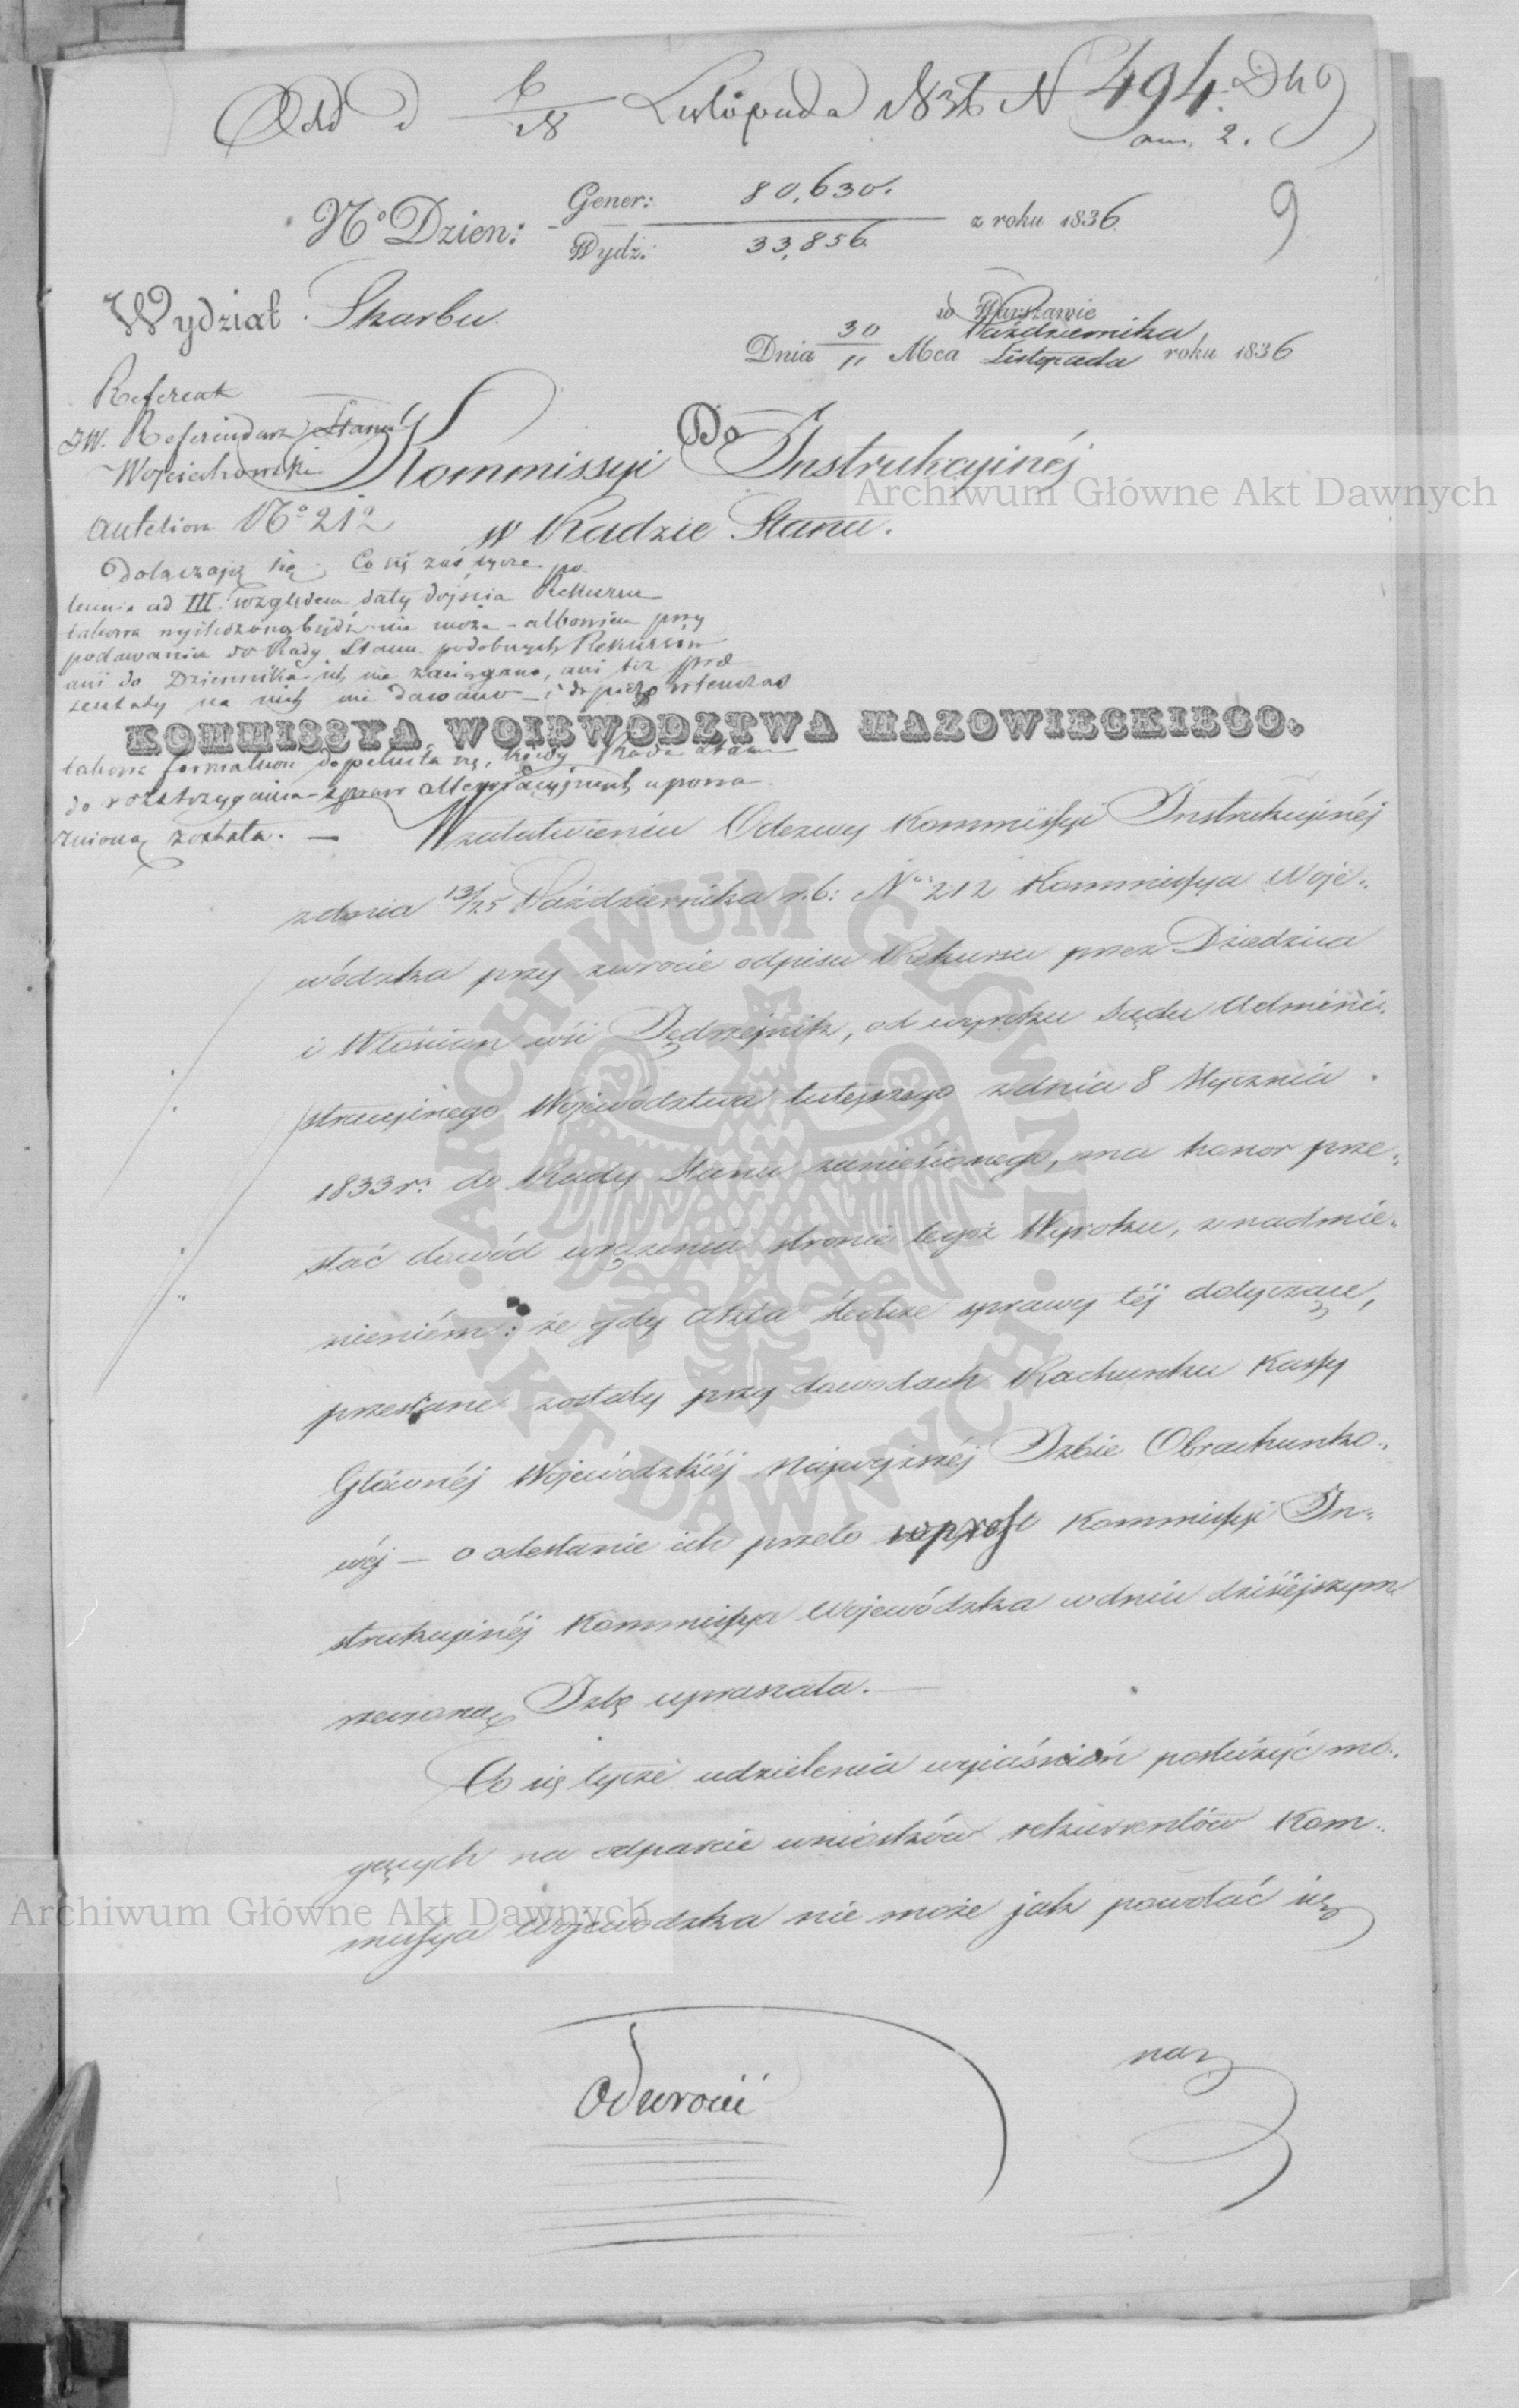 Odd d 6/18 Listopada 1836 N 494. Dho
an. 2.
9
No Dzien: Gener: 80,630. z roku 1836.
Wydz: 33,856.
Wydział Skarbu.
w Warszawie
Dnia 30/11 Mca Października/Listopada roku 1836
Referent
JW. Referendarz Stanu
Wojciechowski
Do
Kommissyi Instrukcyinéj
w Radzie Stanu.
No 212
Dołączają się. Co się zaś tycze po-
lecenia ad III. względem daty dojścia Rekursu
takowa wyśledzoną bydź nie może - albowiem przy
podawaniu do Rady Stanu podobnych Rekursów
ani do Dziennika ich nie zaciągano, ani też pre-
zentaty na nich nie dawano - i dopiero wtenczas
KOMMISSYA WOIEWODZTWA MAZOWIECKIEGO.
takowa formalność dopełniła się, kiedy Rada Stanu
do rozstrzygania spraw upowa
żnioną została. —
W załatwieniu Odezwy Kommissyi Instrukcyinéj
z dnia 13/25 Października r. b: No 212 Kommissya Woje-
wódzka przy zwrocie odpisu Rekursu przez Dziedzica
i Włościan wsi Jędrzejnik, od wyroku Sądu Admini-
stracyinego Województwa tutejszego z dnia 8 Stycznia
1833 r: do Rady Stanu zaniesionego, ma honor prze-
słać dowód wręczenia stronie tegoż Wyroku, z nadmie-
nieniém: że gdy Akta śledcze sprawy téj dotyczące,
przesłane zostały przy dowodach Rachunku Kassy
Głównéj Wojewódzkiéj Najwyższéj Izbie Obrachunko-
wéj — o odesłanie ich przeto wprost Kommissyi In-
strukcyinéj Kommissya Wojewódzka w dniu dzisiéjszym
rzeczoną Izbę upraszała. —
Co się tycze udzielenia wyjaśnień posłużyć mo-
gących na odparcie wniosków rekurrentów Kom-
missya Wojewódzka nie może jak powołać się
na
Odwrocić